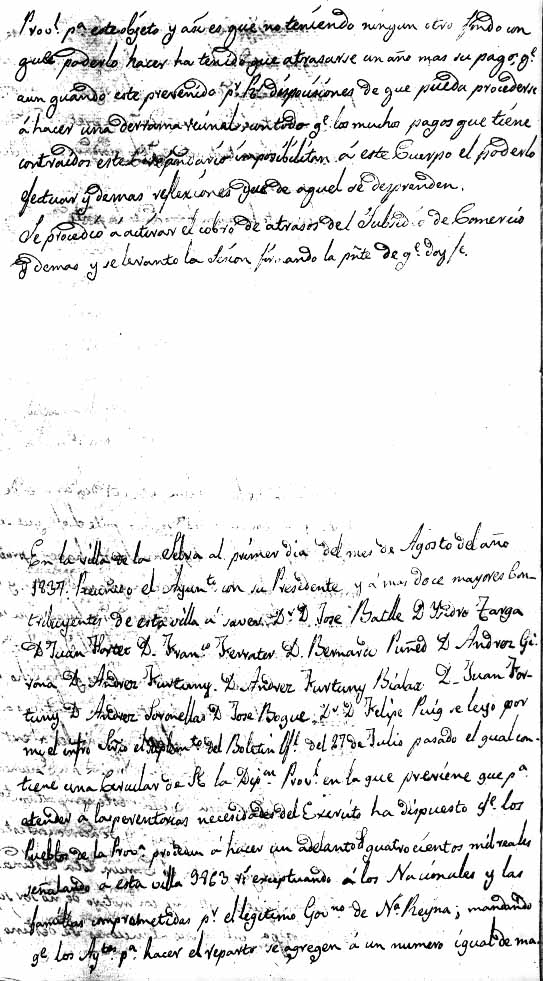 Prov.l p.a este objeto y asi es que no teniendo ningun otro fondo con
que poderlo hacer ha tenido que atrasarse un año mas su pago, q.e
aun quando este prevenido p.r R.s disposiciones de que pueda procederse
á hacer una derrama vecinal, con todo q.e los muchos pagos que tiene
contraidos este imposibilitan á este Cuerpo el poderlo
efectuar y demas reflexiónes que de aquel se desprenden.
Se procedió á activar el cobro de atrasos del Subsidio de Comercio
y demas y se levanto la Sesion firmando la pñte de q.e doy fe.
En la villa de la Selva al primer dia del mes de Agosto del año
1837. Reunido el Ayunt.o con su Presidente y á mas doce mayores Con-
tribuyentes de esta villa á saver D.r D. Jose Batlle D Ysidro Targa
D Juan Fortet D. Fran.co Ferrater D. Bernardo Puñed D Andrez Gi-
rona D. Andrez Furtuny. D. Andrez Furtuny Bialaz D. Juan For-
tuny D Andrez Soronellas D Jose Bogue, D.r D Felipe Puig se leyo por
mi el infro Srio el Suplem.to del Boletin Ofl. del 27 de Julio pasado el qual con-
tiene una Circular de la Dip.on Prov.l en la que previene que p.a
atender á las perentorias necesidades del Exercito ha dispuesto q.e los
Pueblos de la Prov.a procedan á hacer un adelanto de quatrocientos mil reales
señalando á esta villa 9863 r.s exceptuando á los Nacionales y las
familias comprometidas p.r el legitimo Gov.no de N.a Reyna; mandando
q.e los Ay.tos p.a hacer el reparto se agregen á un numero igual de ma-